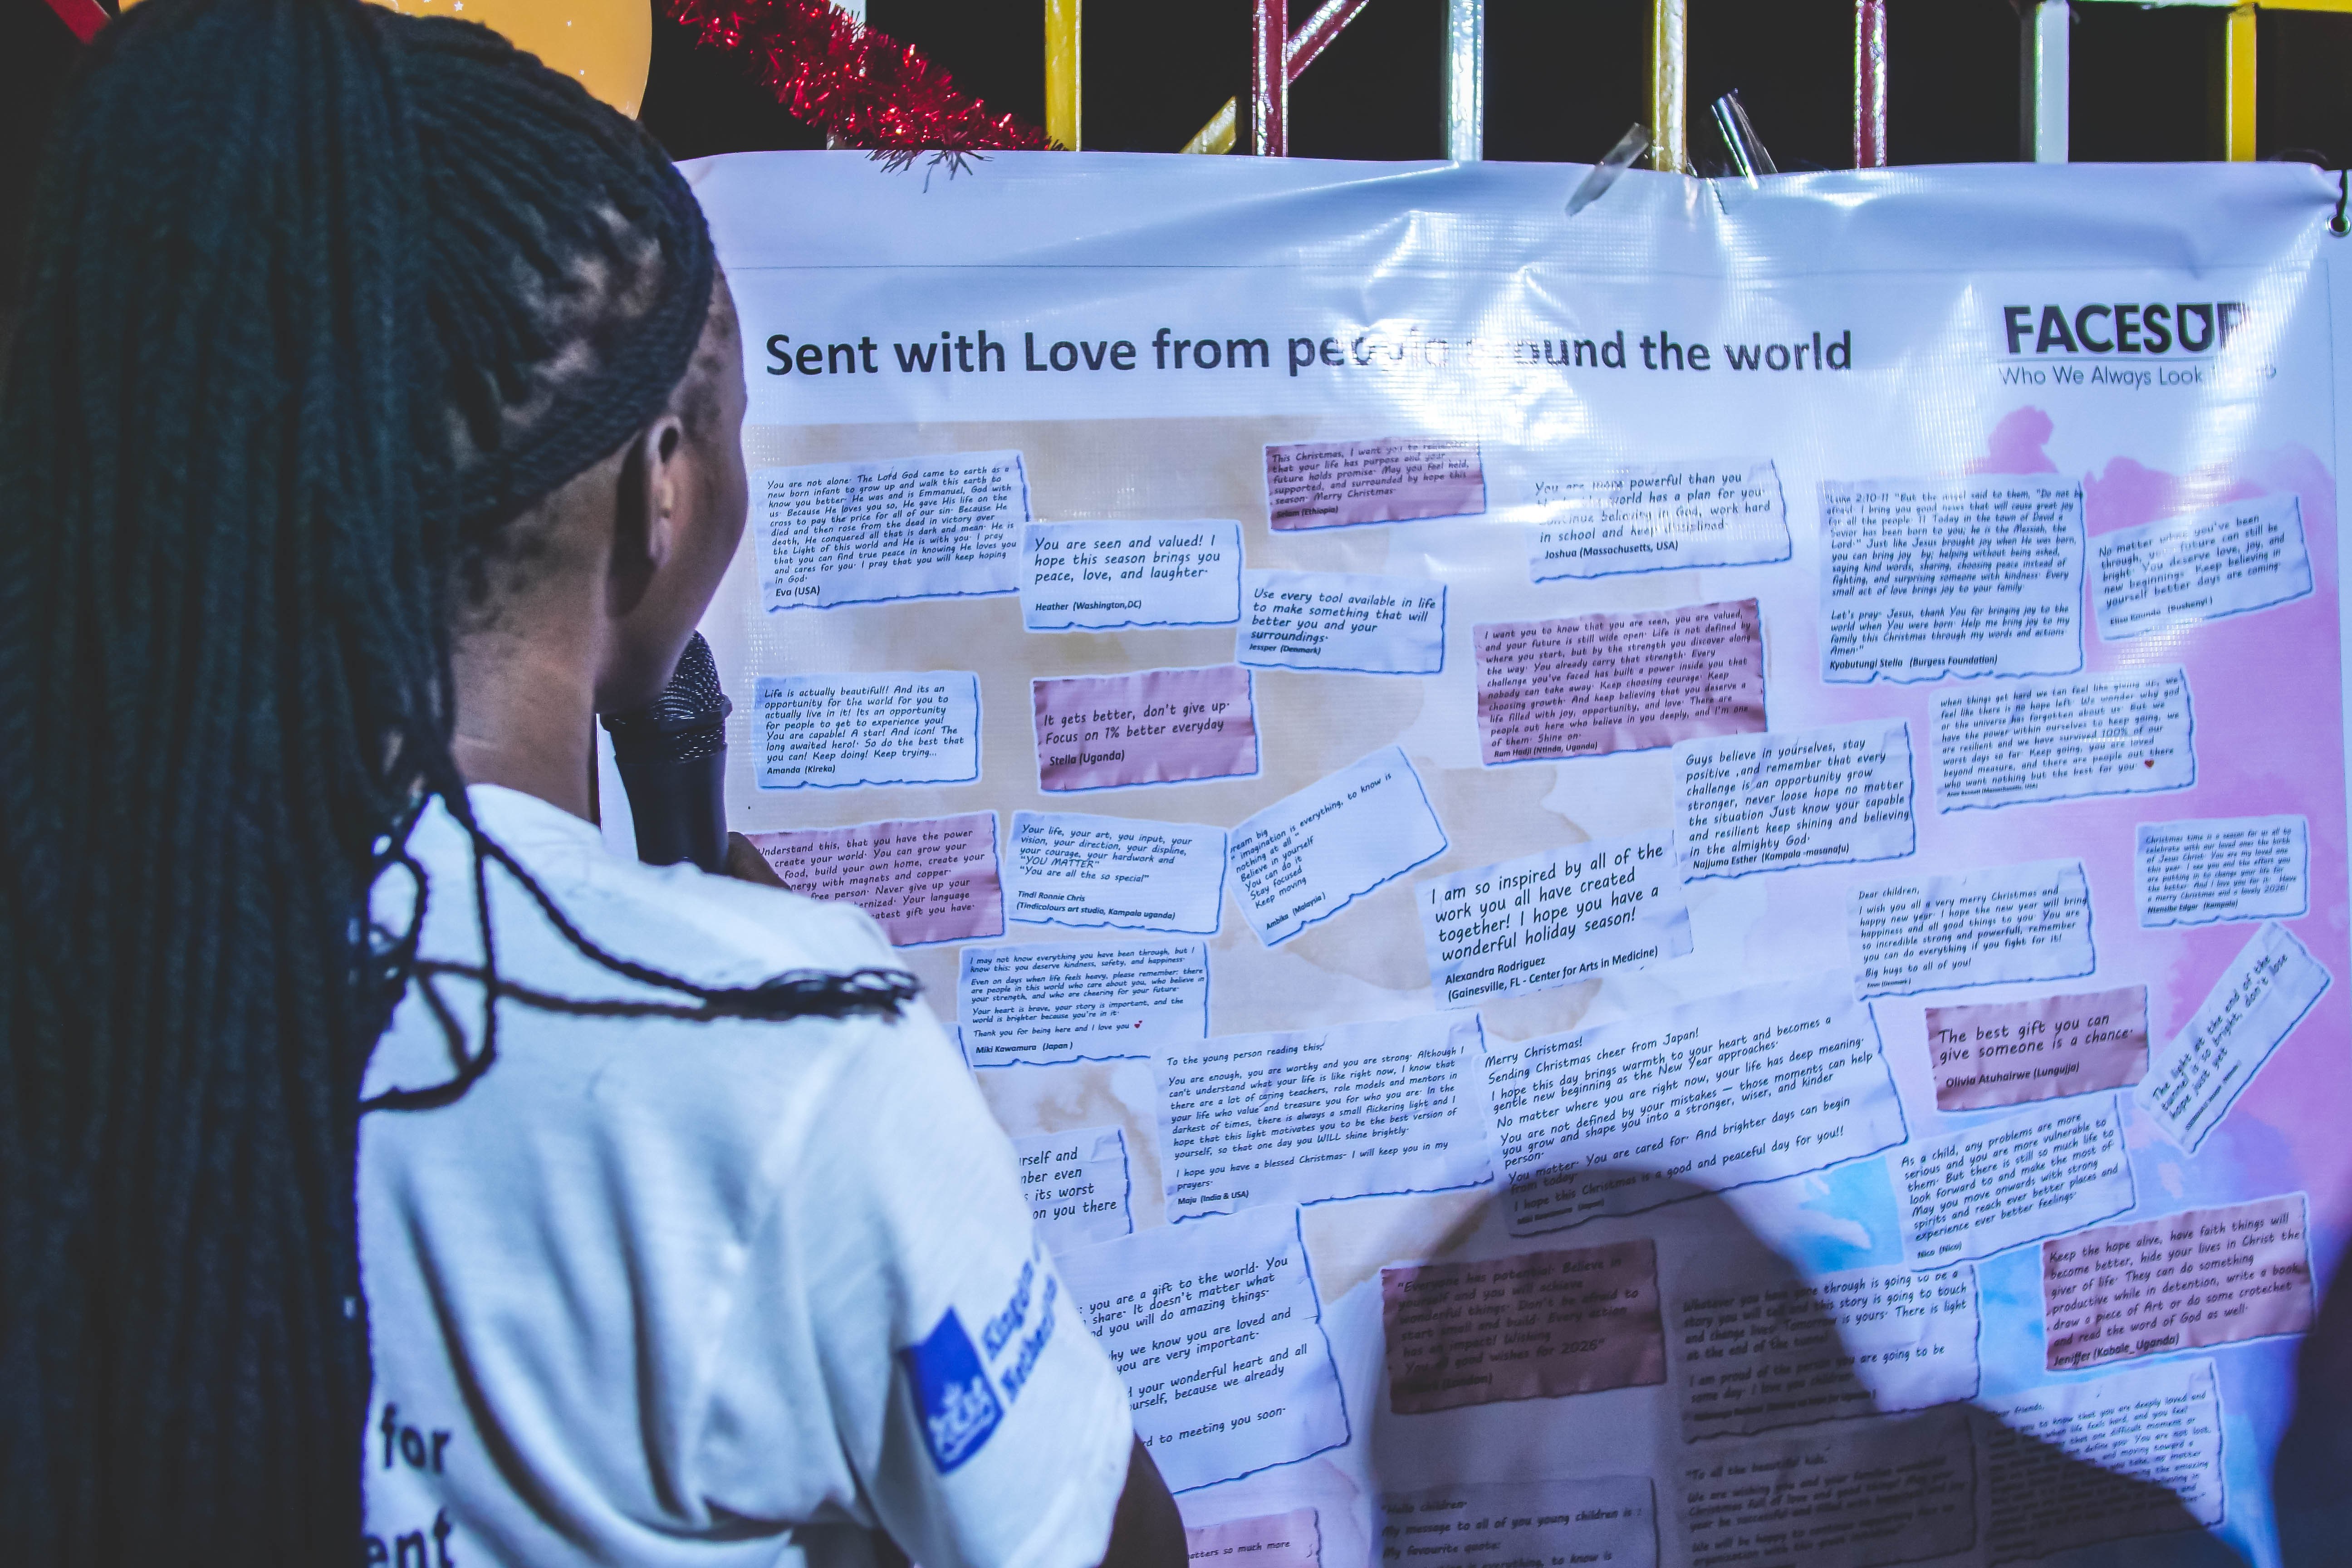 Sent with Love from people around the world
FACESUP
Who We Always Look
You are not alone. The Lord God came to earth as a
new born infant to grow up and walk this earth to
know you better. He was and is Emmanuel, God with
us. Because He loves you so, He gave His life on the
cross to pay the price for all of our sin. Because He
died and then rose from the dead in victory over
death, He conquered all that is dark and mean. He is
the Light of this world and He is with you. I pray
that you can find true peace in knowing He loves you
and cares for you. I pray that you will keep hoping
in God.
Eva (USA)
You are seen and valued! I
hope this season brings you
peace, love, and laughter.
Heather (Washington,DC)
This Christmas, I want you to remember
that your life has purpose and your
future holds promise. May you feel held,
supported, and surrounded by hope this
season. Merry Christmas.
(Ethiopia)
Use every tool available in life
to make something that will
better you and your
surroundings.
Jessper (Denmark)
You are more powerful than you
world has a plan for you.
Continue believing in God, work hard
in school and keep disciplined.
Joshua (Massachusetts, USA)
"Luke 2:10-11 "But the angel said to them, "Do not be
afraid. I bring you good news that will cause great joy
for all the people. 11 Today in the town of David a
Savior has been born to you; he is the Messiah, the
Lord." Just like Jesus brought joy when He was born,
you can bring joy by; helping without being asked,
saying kind words, sharing, choosing peace instead of
fighting, and surprising someone with kindness. Every
small act of love brings joy to your family.
Let's pray. Jesus, thank You for bringing joy to the
world when You were born. Help me bring joy to my
family this Christmas through my words and actions.
Amen."
Kyobutungi Stella (Burgess Foundation)
No matter what you've been
through, your future can still be
bright. You deserve love, joy, and
new beginnings. Keep believing in
yourself better days are coming.
(Bushenyi)
I want you to know that you are seen, you are valued,
and your future is still wide open. Life is not defined by
where you start, but by the strength you discover along
the way. You already carry that strength. Every
challenge you've faced has built a power inside you that
nobody can take away. Keep choosing courage. Keep
choosing growth. And keep believing that you deserve a
life filled with joy, opportunity, and love. There are
people out here who believe in you deeply, and I'm one
of them. Shine on.
Ram Hadji (Ntinda, Uganda)
Life is actually beautiful!! And its an
opportunity for the world for you to
actually live in it! Its an opportunity
for people to get to experience you!
You are capable! A star! And icon! The
long awaited hero!. So do the best that
you can! Keep doing! Keep trying...
Amanda (Kireka)
It gets better, don't give up.
Focus on 1% better everyday
Stella (Uganda)
when things get hard we can feel like giving up, we
feel like there is no hope left. We wonder why god
or the universe has forgotten about us. But we
have the power within ourselves to keep going, we
are resilient and we have survived 100% of our
worst days so far. Keep going, you are loved
beyond measure, and there are people out there
who want nothing but the best for you.
(Massachusetts, USA)
Guys believe in yourselves, stay
positive ,and remember that every
challenge is an opportunity grow
stronger, never loose hope no matter
the situation Just know your capable
and resilient keep shining and believing
in the almighty God.
Najjuma Esther (Kampala -masanafu)
Understand this, that you have the power
create your world. You can grow your
food, build your own home, create your
energy with magnets and copper.
free person. Never give up your
Your language
greatest gift you have.
Your life, your art, you input, your
vision, your direction, your displine,
your courage, your hardwork and
"YOU MATTER"
"You are all the so special"
Tindi Ronnie Chris
(Tindicolours art studio, Kampala uganda)
Dream big
" imagination is everything, to know is
nothing at all "
Believe in yourself
You can do it
Stay focused
Keep moving
Ambika (Malaysia)
I am so inspired by all of the
work you all have created
together! I hope you have a
wonderful holiday season!
Alexandra Rodriguez
(Gainesville, FL - Center for Arts in Medicine)
Christmas time is a season for us all to
celebrate with our loved ones the birth
of Jesus Christ. You are my loved ones
this year. I see you and the efforts you
are putting in to change your life for
the better. And I love you for it. Have
a merry Christmas and a lovely 2026!
Edgar (Kampala)
Dear children,
I wish you all a very merry Christmas and
happy new year. I hope the new year will bring
happiness and all good things to you. You are
so incredible strong and powerfull, remember
you can do everything if you fight for it!
Big hugs to all of you!
(Denmark)
I may not know everything you have been through, but I
know this: you deserve kindness, safety, and happiness.
Even on days when life feels heavy, please remember: there
are people in this world who care about you, who believe in
your strength, and who are cheering for your future.
Your heart is brave, your story is important, and the
world is brighter because you're in it.
Thank you for being here and I love you
Miki Kawamura (Japan )
The best gift you can
give someone is a chance.
Olivia Atuhairwe (Lungujja)
The light at the end of the
tunnel is so bright, don't lose
hope just yet
To the young person reading this,
You are enough, you are worthy and you are strong. Although I
can't understand what your life is like right now, I know that
there are a lot of caring teachers, role models and mentors in
your life who value and treasure you for who you are. In the
darkest of times, there is always a small flickering light and I
hope that this light motivates you to be the best version of
yourself, so that one day you WILL shine brightly.
I hope you have a blessed Christmas. I will keep you in my
prayers.
Maju (India & USA)
Merry Christmas!
Sending Christmas cheer from Japan!
I hope this day brings warmth to your heart and becomes a
gentle new beginning as the New Year approaches.
No matter where you are right now, your life has deep meaning.
You are not defined by your mistakes — those moments can help
you grow and shape you into a stronger, wiser, and kinder
person.
You matter. You are cared for. And brighter days can begin
from today.
I hope this Christmas is a good and peaceful day for you!!
As a child, any problems are more
serious and you are more vulnerable to
them. But there is still so much life to
look forward to and make the most of
May you move onwards with strong
spirits and reach ever better places and
experience ever better feelings.
Nico (Nico)
rself and
ber even
its worst
on you there
Keep the hope alive, have faith things will
become better, hide your lives in Christ the
giver of life. They can do something
productive while in detention, write a book,
draw a piece of Art or do some crotecket
and read the word of God as well.
Jeniffer (Kabale_Uganda)
you are a gift to the world. You
share. It doesn't matter what
you will do amazing things.
why we know you are loved and
you are very important.
your wonderful heart and all
yourself, because we already
to meeting you soon.
"Everyone has potential. Believe in
yourself and you will achieve
wonderful things. Don't be afraid to
start small and build. Every action
has an impact! Wishing
You good wishes for 2026"
(London)
Whatever you have gone through is going to be a
story you will tell and this story is going to touch
and change lives. is yours. There is light
at the end of the tunnel.
I am proud of the person you are going to be
some day. I love you children
Dear friends,
to know that you are deeply loved and
when life feels hard, and you feel
that one difficult moment or
define you. You are not lost,
and moving toward a
"To all the beautiful kids.
We are wishing you and your families
Christmas full of love and good things! May
year be successful and filled with
We will be happy to continue supporting
organization with this great mission"
"Hello children.
My message to all of you young children is :
My favourite quote:
is everything, to know is
matters so much more
Kingdom
for
ent